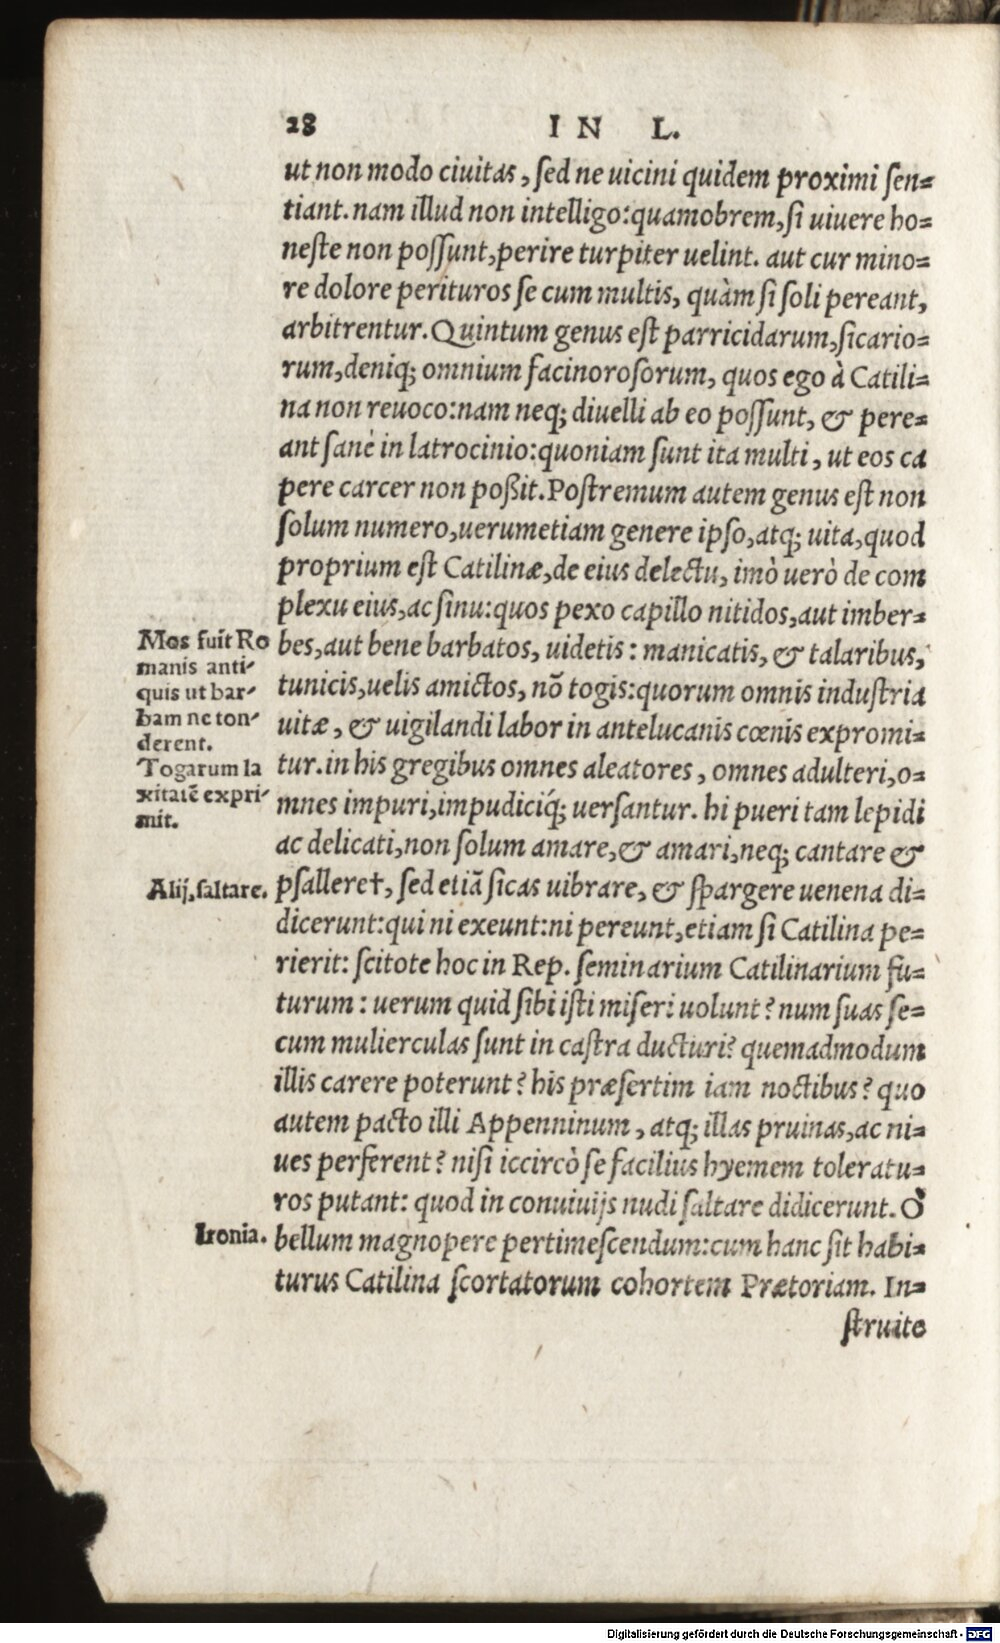 28 IN L.
ut non modo ciuitas, ſed ne uicini quidem proximi ſen=
tiant. nam illud non intelligo: quamobrem, ſi uiuere ho=
neſte non poſſunt, perire turpiter uelint. aut cur mino=
re dolore perituros ſe cum multis, quàm ſi ſoli pereant,
arbitrentur. Quintum genus eſt parricidarum, ſicario=
rum, deniq; omnium facinoroſorum, quos ego à Catili=
na non reuoco: nam neq; diuelli ab eo poſſunt, & pere=
ant ſanè in latrocinio: quoniam ſunt ita multi, ut eos ca
pere carcer non poßit. Poſtremum autem genus eſt non
ſolum numero, uerumetiam genere ipſo, atq; uita, quod
proprium eſt Catilinæ, de eius delectu, imò uerò de com
plexu eius, ac ſinu: quos pexo capillo nitidos, aut imber=
bes, aut bene barbatos, uidetis: manicatis, & talaribus,
tunicis, uelis amictos, nõ togis: quorum omnis induſtria
uitæ, & uigilandi labor in antelucanis cœnis expromi=
tur. in his gregibus omnes aleatores, omnes adulteri, o=
mnes impuri, impudiciq́; uerſantur. hi pueri tam lepidi
ac delicati, non ſolum amare, & amari, neq; cantare &
pſallere†, ſed etiã ſicas uibrare, & ſpargere uenena di=
dicerunt: qui ni exeunt: ni pereunt, etiam ſi Catilina pe=
rierit: ſcitote hoc in Rep. ſeminarium Catilinarium fu=
turum: uerum quid ſibi iſti miſeri uolunt? num ſuas ſe=
cum mulierculas ſunt in caſtra ducturi? quemadmodum
illis carere poterunt? his præſertim iam noctibus? quo
autem pacto illi Appenninum, atq; illas pruinas, ac ni=
ues perferent? niſi iccircò ſe facilius hyemem toleratu=
ros putant: quod in conuiuijs nudi ſaltare didicerunt. Ò
bellum magnopere pertimeſcendum: cum hanc ſit habi=
turus Catilina ſcortatorum cohortem Prætoriam. In=
ſtruite
Mos fuit Ro
manis anti-
quis ut bar-
bam ne ton-
derent.
Togarum la
xitatẽ expri-
mit.
Alij, ſaltare.
Ironia.
Digitalisierung gefördert durch die Deutsche Forschungsgemeinschaft - DFG